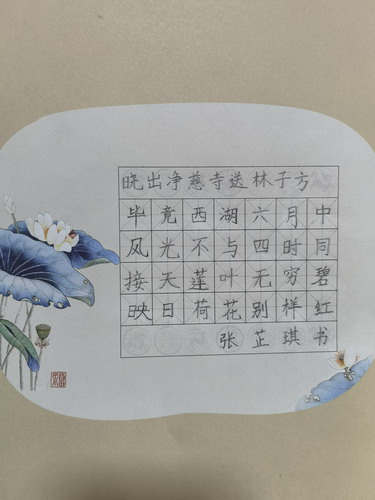 晓出净慈寺送林子方
毕竟西湖六月中
风光不与四时同
接天莲叶无穷碧
映日荷花别样红
张芷琪书